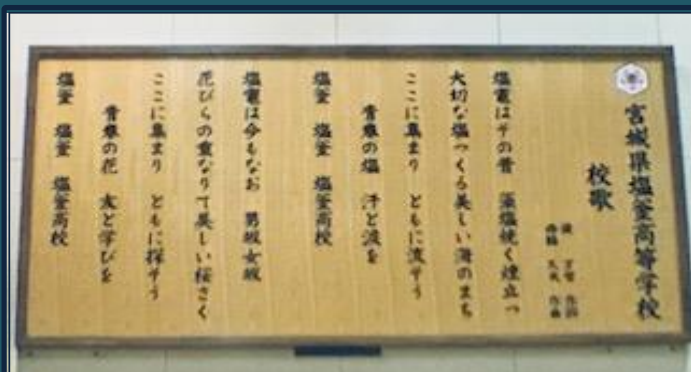 宮城県塩釜高等学校
校歌
俵 万智 作詞
作曲
塩竈はその昔 藻塩焼く煙立つ
大切な塩つくる美しい海のまち
ここに集まり ともに流そう
青春の塩 汗と涙を
塩釜 塩釜 塩釜高校
塩竈は今もなお 男坂女坂
花びらの重なりて美しい桜さく
ここに集まり ともに探そう
青春の花 友と学びを
塩釜 塩釜 塩釜高校